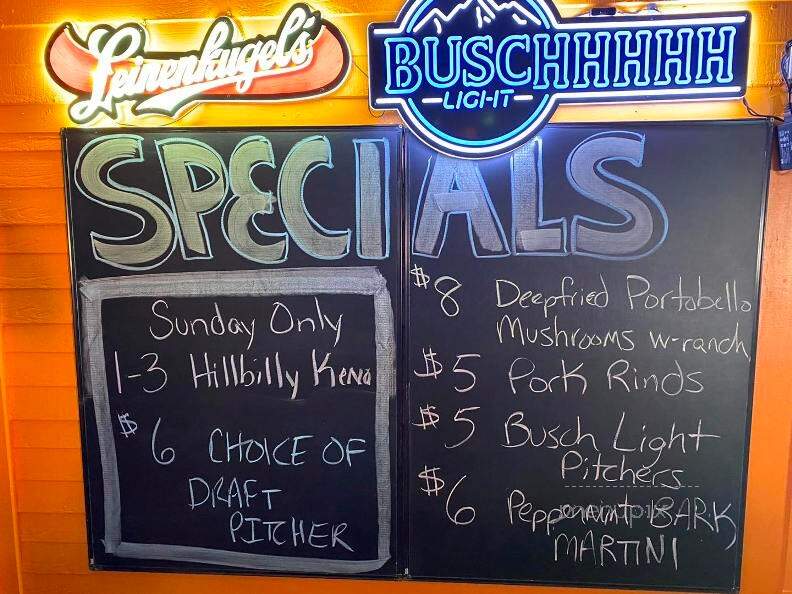 Leinenkugel's
BUSCHHHHH
LIGHT
SPECIALS
Sunday Only
1-3 Hillbilly Keno
$6 CHOICE OF
DRAFT
PITCHER
$8 Deepfried Portobello
Mushrooms w-ranch
$5 Pork Rinds
$5 Busch Light
Pitchers
$6 Peppermint BARK
MARTINI